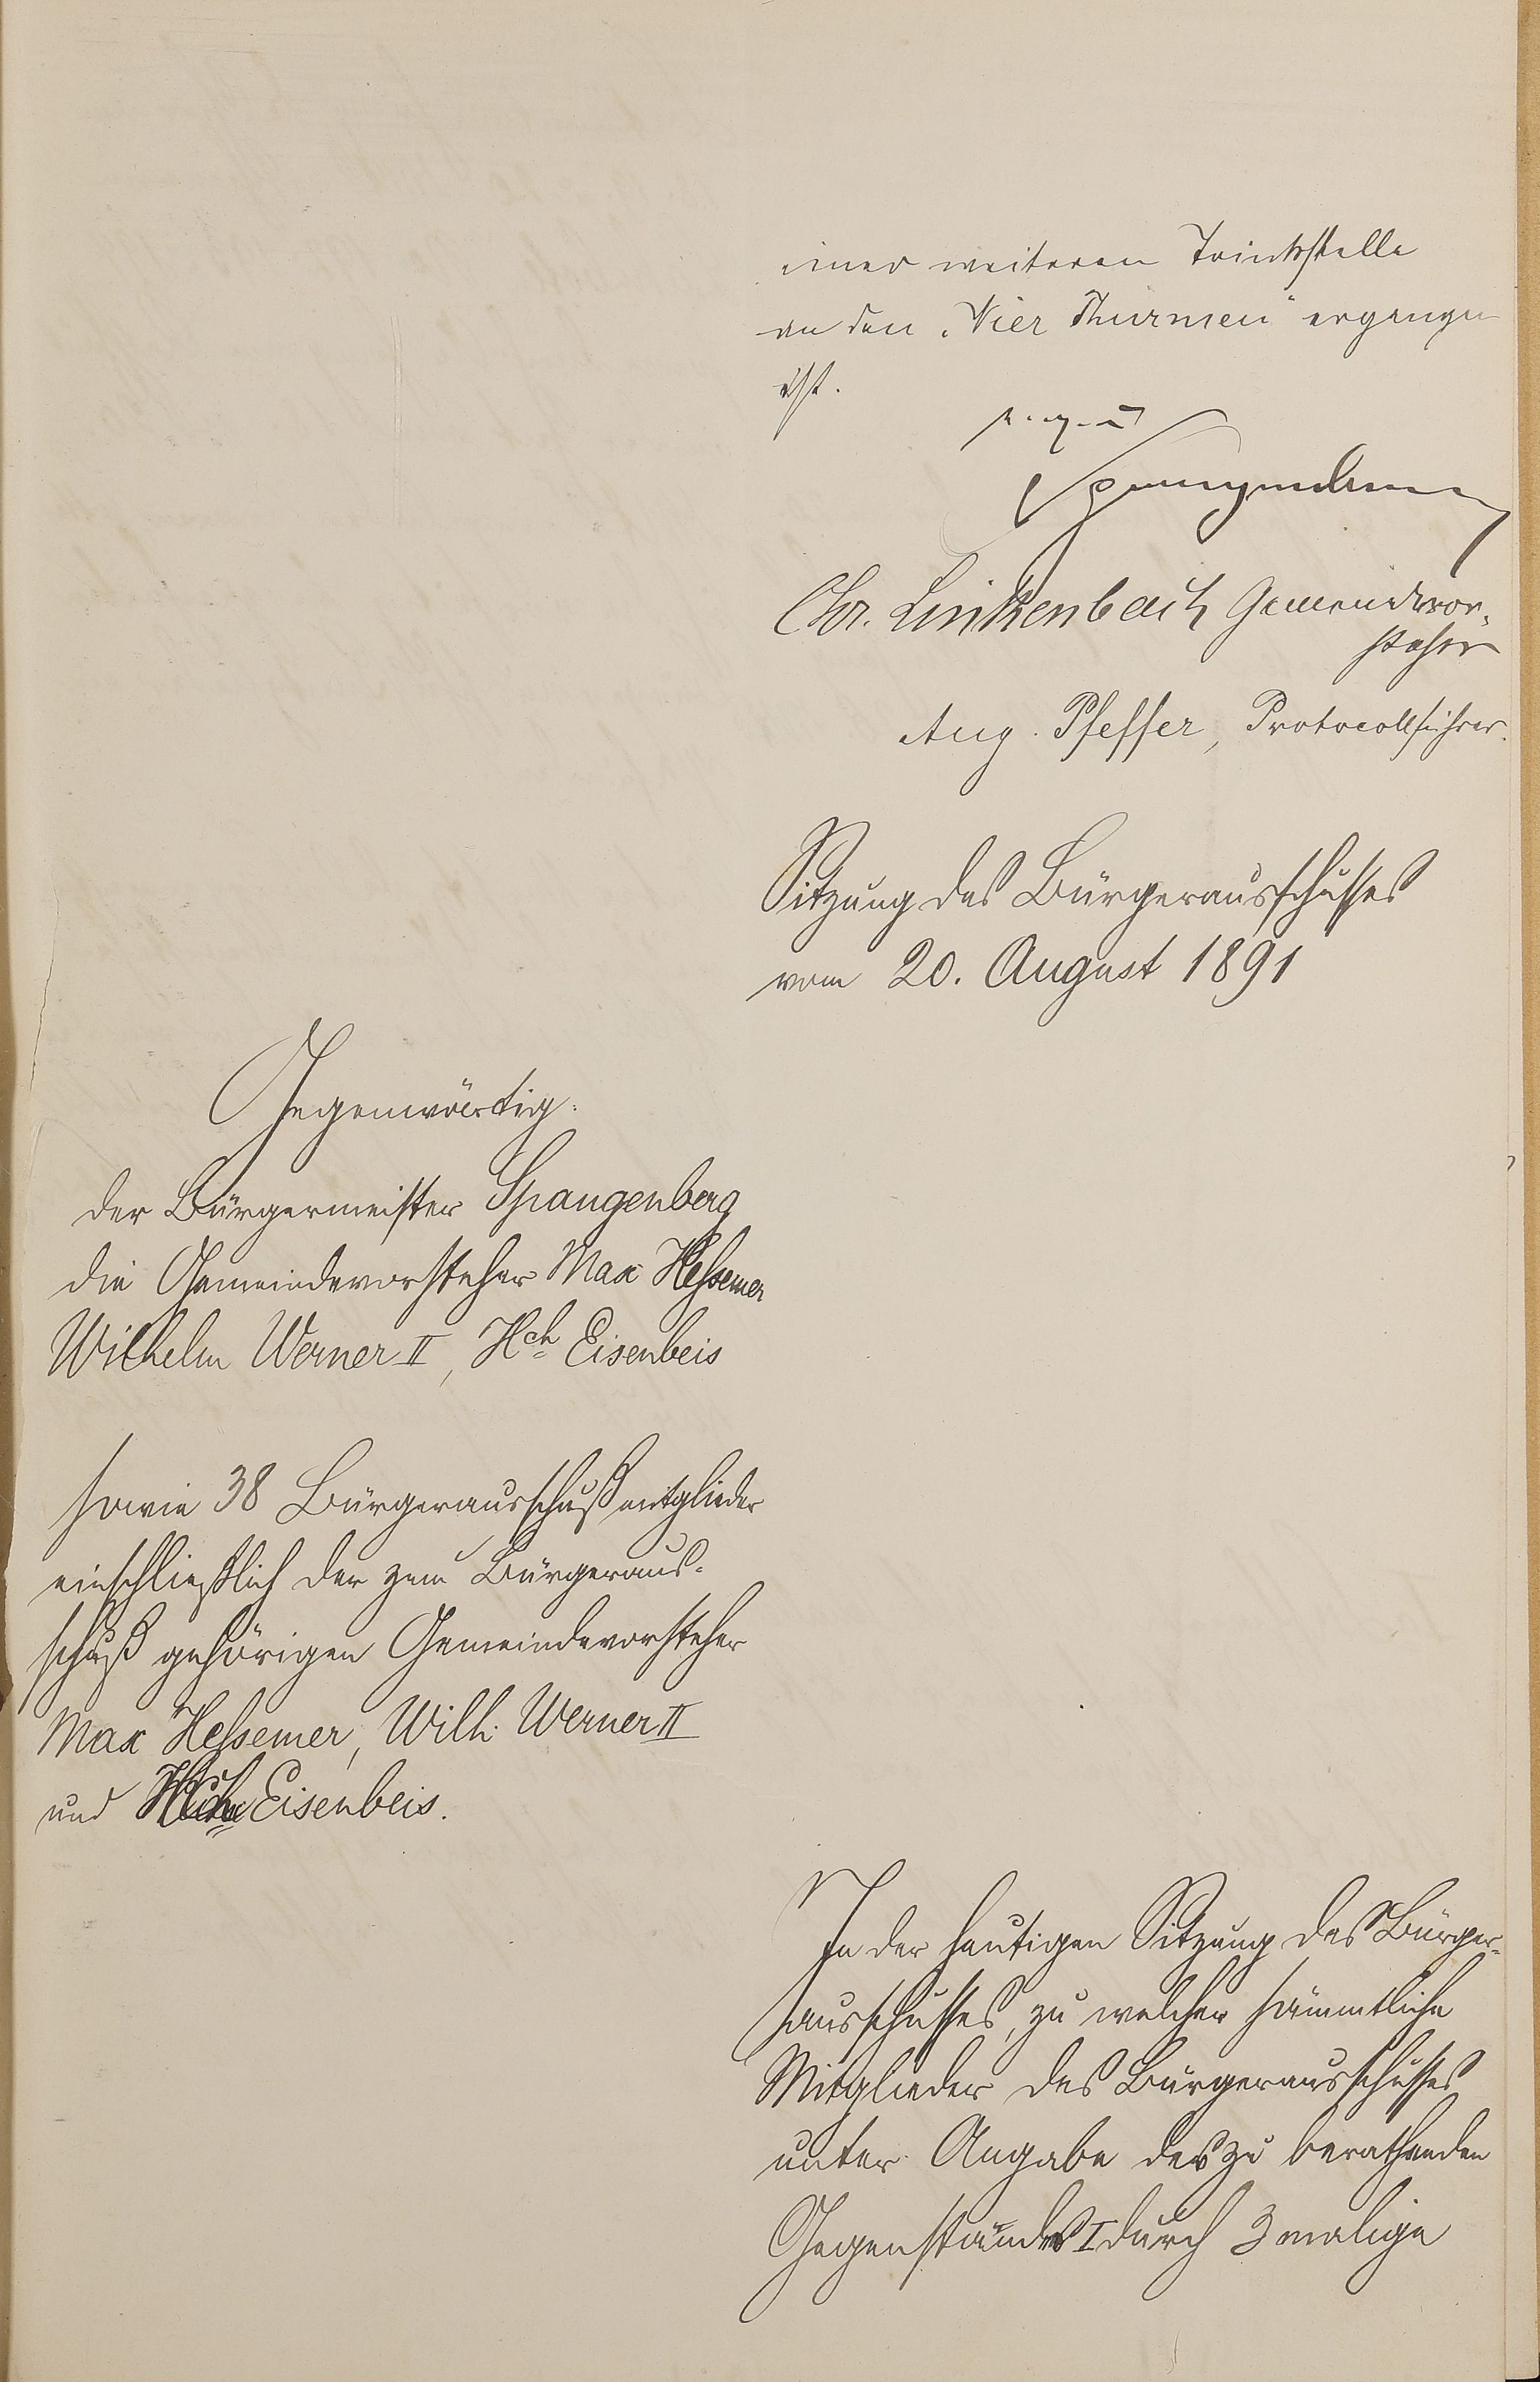 einer weiteren Trinkstelle
an den „Vier Thürmen" ergangen
ist.
v. g. u.
Spangenberg
Chr. Linkenbach Gemeindevor-
steher
Aug. Pfeffer, Protocollführer.
Sitzung des Bürgerausschusses
vom 20. August 1891
Gegenwärtig:
der Bürgermeister Spangenberg
die Gemeindevorsteher Max Hessemer
Wilhelm Werner II, Hch Eisenbeis
sowie 38 Bürgerausschußmitglieder
einschließlich der zum Bürgeraus-
schuß gehörigen Gemeindevorsteher
Max Hessemer, Wilh. Werner II
und Hch Eisenbeis.
In der heutigen Sitzung des Bürger-
ausschusses, zu welcher sämmtliche
Mitglieder des Bürgerausschusses
unter Angabe des zu berathenden
Gegenstandes I durch 3 malige